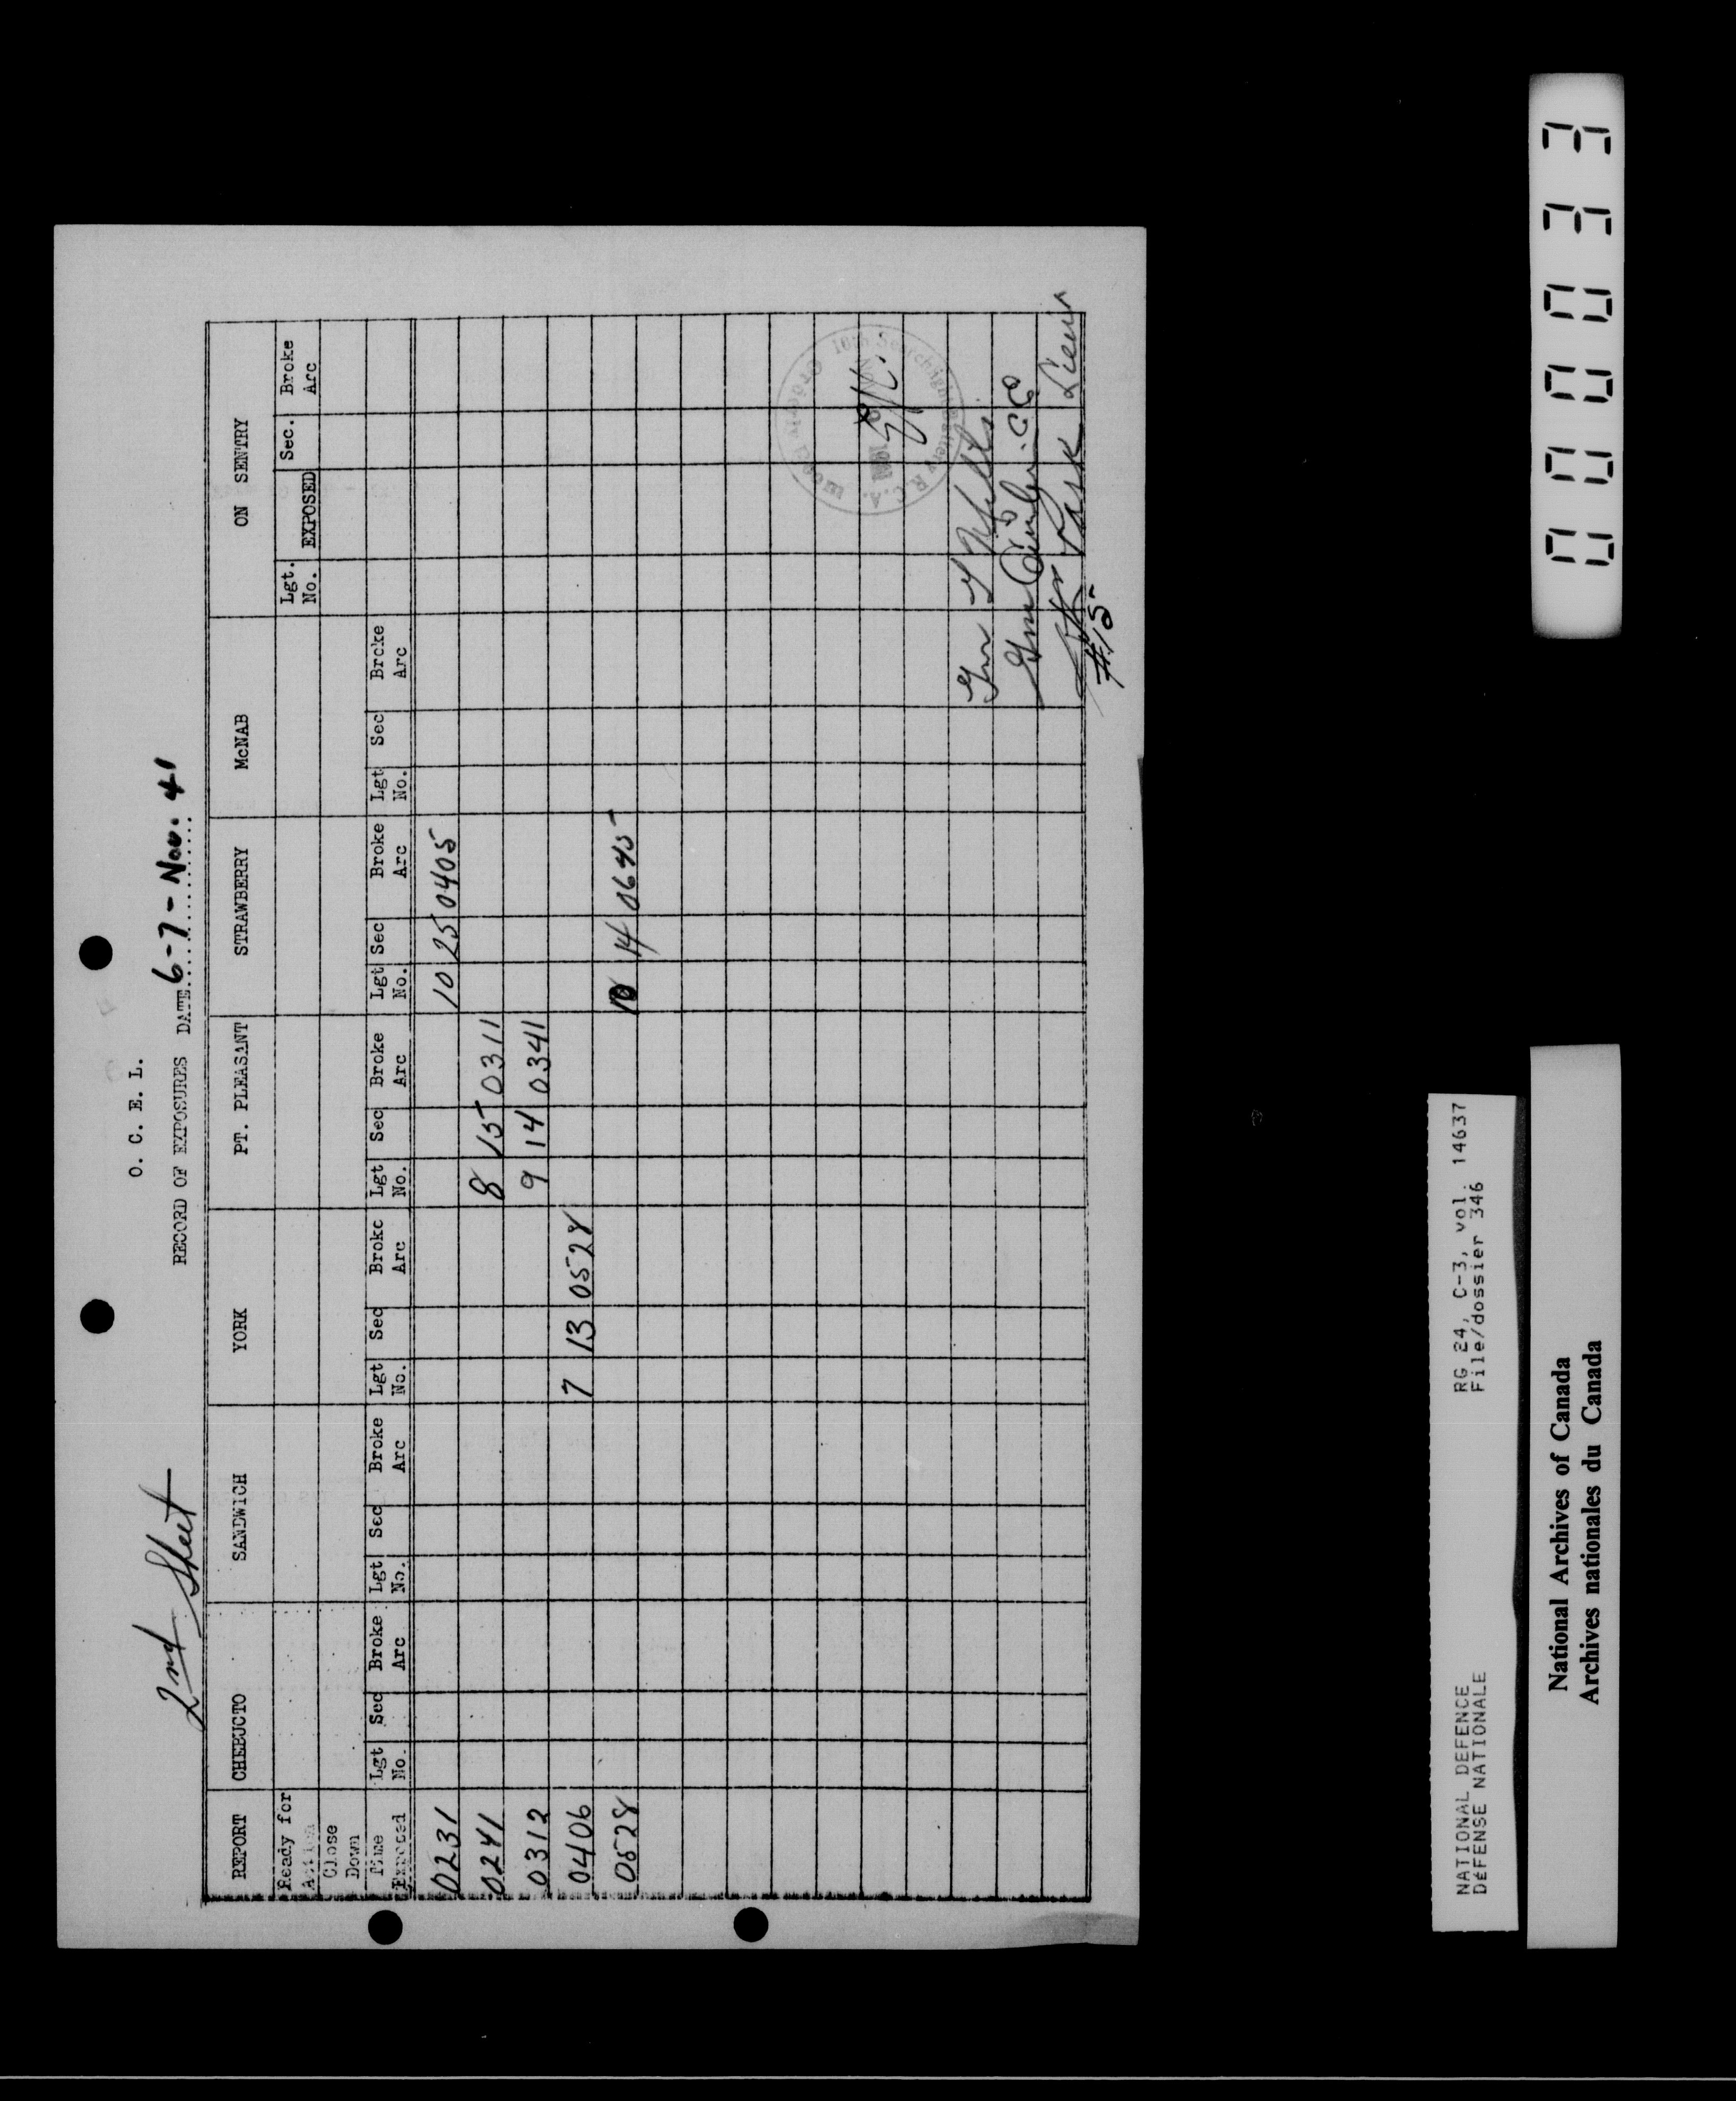 O. C. E. L.
2nd Sheet
RECORD OF EXPOSURES DATE 6-7- Nov. 41
REPORT CHEBUCTO SANDWICH YORK PT. PLEASANT STRAWBERRY McNAB ON SENTRY
Ready for Lgt. No. EXPOSED Sec. Broke Arc
Action
Close
Down
Time Exposed Lgt No. Sec Broke Arc Lgt No. Sec Broke Arc Lgt No. Sec Broke Arc Lgt No. Sec Broke Arc Lgt No. Sec Broke Arc Lgt No. Sec Broke Arc
0231 10 25 0405
0241 8 15 0311
0312 9 14 0341
0406 7 13 0528
0528 10 14 0645
16th Searchlight Battery R.C.A.
Gnr
Park Lieut
#15
NATIONAL DEFENCE RG 24, C-3, vol. 14637
DÉFENSE NATIONALE File/dossier 346
National Archives of Canada
Archives nationales du Canada
0000033